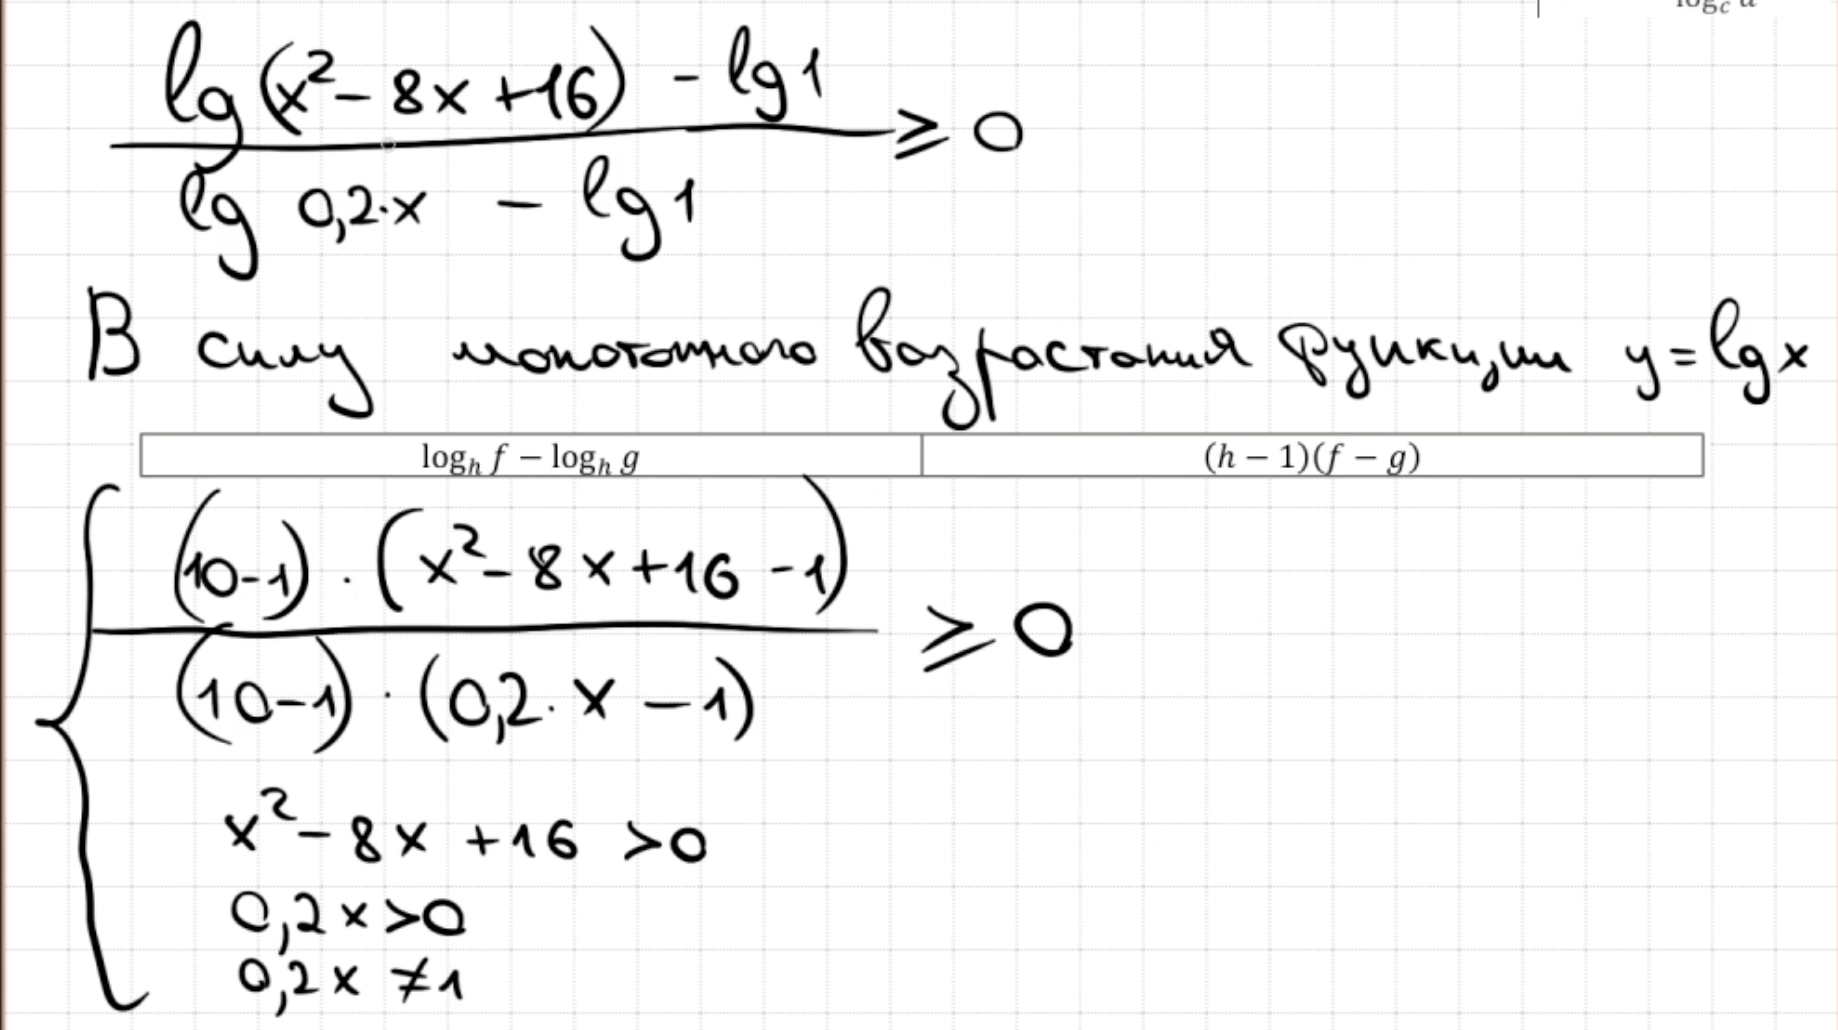 log_c a
lg(x² - 8x + 16) - lg 1
≥ 0
lg 0,2·x - lg 1
В силу монотонного возрастания функции y = lg x
log_h f − log_h g (h − 1)(f − g)
(10-1) · (x² - 8x + 16 - 1)
≥ 0
(10-1) · (0,2·x - 1)
x² - 8x + 16 > 0
0,2x > 0
0,2x ≠ 1